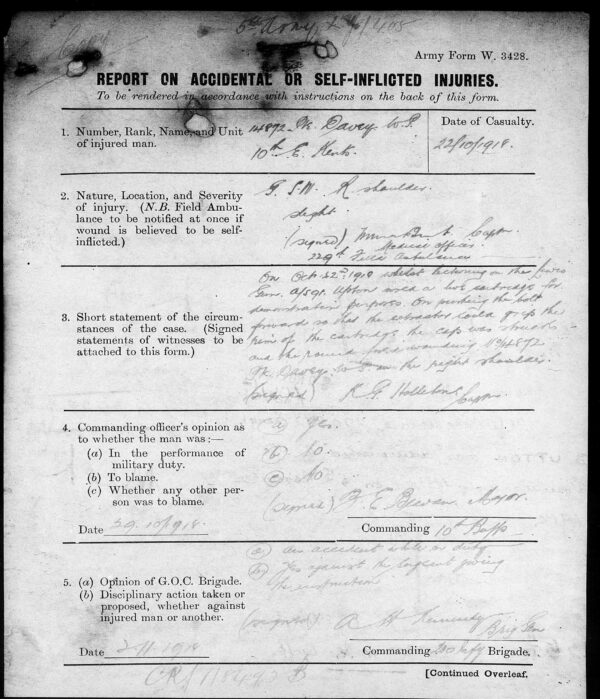 Copy
5th Army
Army Form W. 3428.
REPORT ON ACCIDENTAL OR SELF-INFLICTED INJURIES.
To be rendered in accordance with instructions on the back of this form.
1. Number, Rank, Name, and Unit
of injured man.
14892 Pte. Davey W.
10th E. Kents.
Date of Casualty.
22/10/1918.
2. Nature, Location, and Severity
of injury. (N.B. Field Ambu-
lance to be notified at once if
wound is believed to be self-
inflicted.)
G.S.W. R shoulder.
slight
(signed) Capt.
Medical officer.
229th Field Ambulance
3. Short statement of the circum-
stances of the case. (Signed
statements of witnesses to be
attached to this form.)
On Oct. 22nd 1918 whilst lecturing on the Lewis
Gun, Upton used a live cartridge for
demonstration purposes. On pushing the bolt
forward so that the extractor could grip the
rim of the cartridge the cap was struck
and the round fired wounding
Pte Davey in the right shoulder.
(signed) Capt.
4. Commanding officer's opinion as
to whether the man was:—
(a) In the performance of
military duty.
(b) To blame.
(c) Whether any other per-
son was to blame.
a) Yes.
(b) No.
(c) No
(signed) Major.
Date 29.10/1918.
Commanding 10th Buffs
5. (a) Opinion of G.O.C. Brigade.
(b) Disciplinary action taken or
proposed, whether against
injured man or another.
(a) An accident while on duty
(b) Yes against the Sergeant giving
the instruction
(signed) A H Kennedy
Brig Gen
Date 2/11/1918
Commanding Brigade.
[Continued Overleaf.